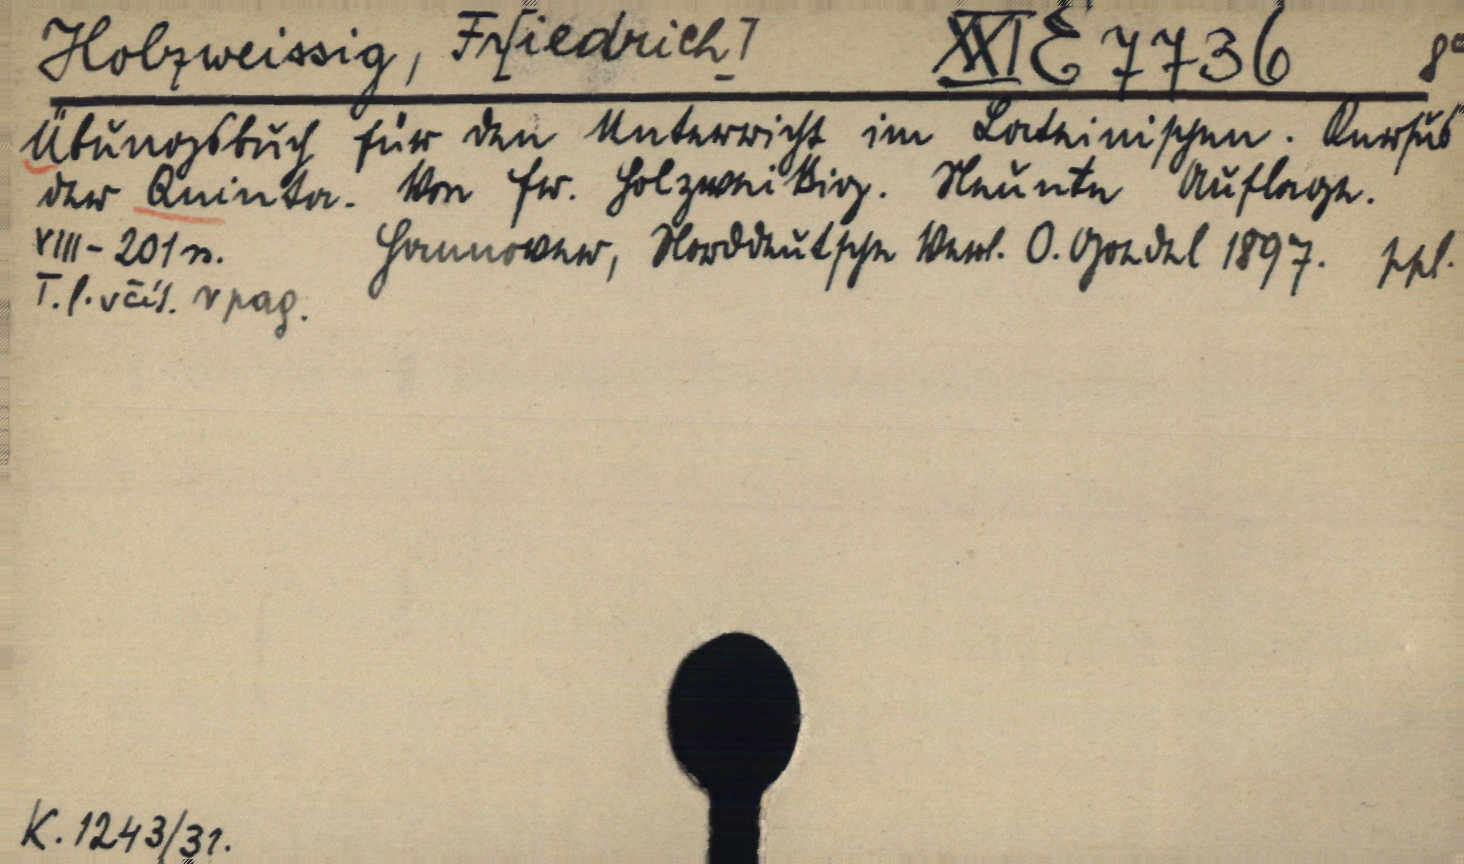 Holzweissig, Fr[iedrich] XXI E 7736 8°
Übungsbuch für den Unterricht im Lateinischen. Kursus
der Quinta. Von Fr. Holzweißig. Neunte Auflage.
VIII - 201 s. Hannover, Norddeutsche Verl. O. Goedel 1897. ppl.
T. l. včís. v pag.
K. 1243/31.